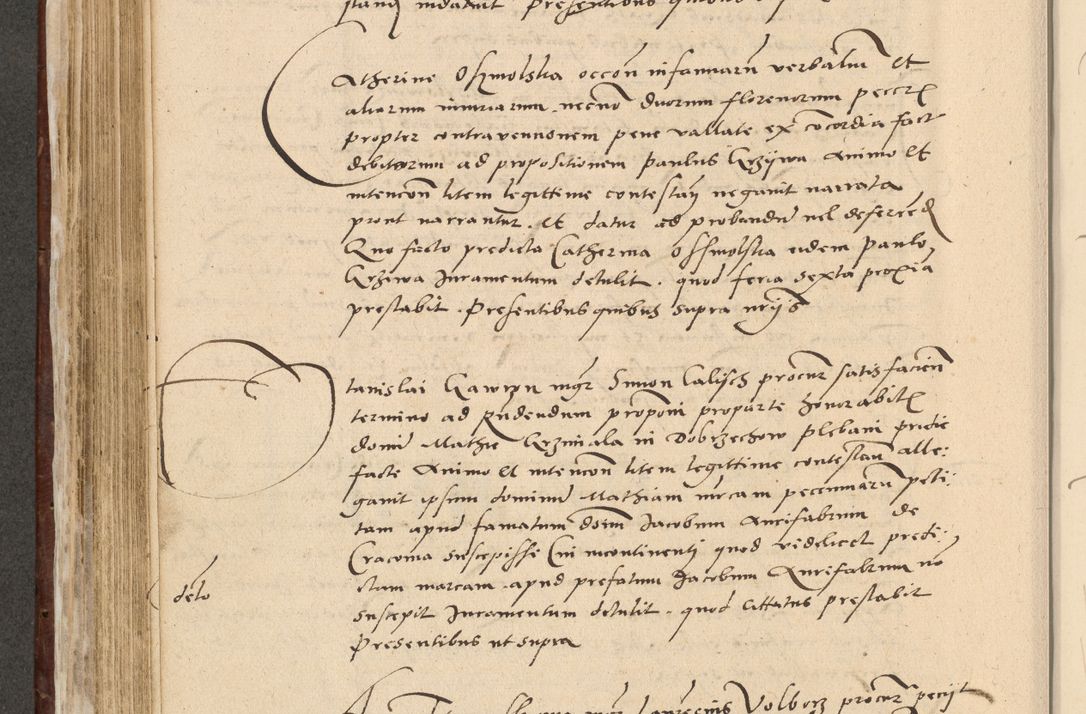 Catherine Oszmolska occōn infamiarū verbaliū Et
aliorum iniuriarum, necnō duorum florenorum peccor
propter contravencionem pene vallate ex cōcordia fact
debitorum ad propositionem Paulus Krzÿwa Animo Et
intencōn litem legittime contestan negavit narrata
prout narrantur. Et datur ad probandū vel deferend
Quo facto predicta Catherina Ossmolska eidem Paulo
Krziwa Iuramentum detulit. quod feria sexta proxīa
prestabit. Presentibus quibus supra
Stanislai Gawron mgr Simon Calisch procur satisfacien
termino ad ponī proparte honorabil
domī Mathie Krzmiala in Dobrzechow plebani pridie
facte Animo Et intencōn litem legittime contestan alle:
gavit ipsum dominū Mathiam mrcam pecuniarū peti:
tam apud famatum dom̄ Iacobum Aurifabrum de
Cracovia suscepisse Cui incontinenti quod videlicet predi:
ctam marcam apud prefatum Iacobum Aurifabrum nō
suscepit Iuramentum detulit. quod Citatus prestabit
Presentibus ut supra
delo
Volborz procur peciit